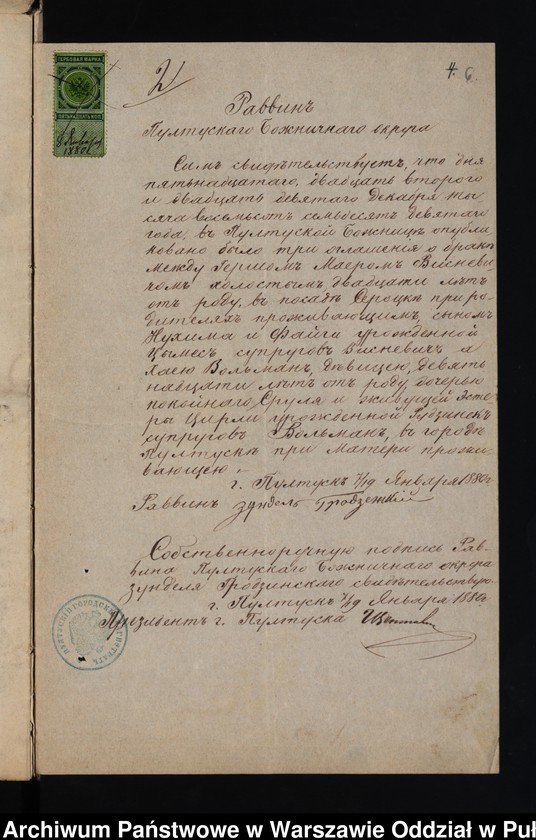 ГЕРБОВАЯ МАРКА
ПЯТЬНАДЦАТЬ КОП.
1880
2
4. 6
Раввинъ
Пултускаго Божничнаго округа
Симъ свидѣтельствуетъ, что дня
пятьнадцатаго, двадцать второго
и двадцать девятаго Декабря ты
сяча восемьсотъ семьдесятъ девятаго
года, въ Пултуской Божницѣ опубли
ковано было три оглашенія о бракѣ
между Гершомъ Маеромъ Висневи
чомъ холостымъ, двадцати лѣтъ
отъ роду, въ посадѣ Сероцкѣ при ро
дителяхъ проживающимъ, сыномъ
Нухима и Файги урожденной
Цымесъ, супруговъ Висневичъ а
Хаею Вольманъ, дѣвицею, девять
надцати лѣтъ отъ роду, дочерью
покойнаго Сруля и живущей Эсте
ры Цирли урожденной
супруговъ Вольманъ, въ городѣ
Пултускѣ при Матери прожи
вающею
г. Пултускъ 7/19 Января 1880 г.
Раввинъ Зундель Гродзенскій
Собственноручную подпись Рав
вина Пултускаго Божничнаго округа
Зунделя Гродзинскаго свидѣтельствую
г. Пултускъ 7/19 Января 1880 г.
Президентъ г. Пултуска
Archiwum Państwowe w Warszawie Oddział w Puł